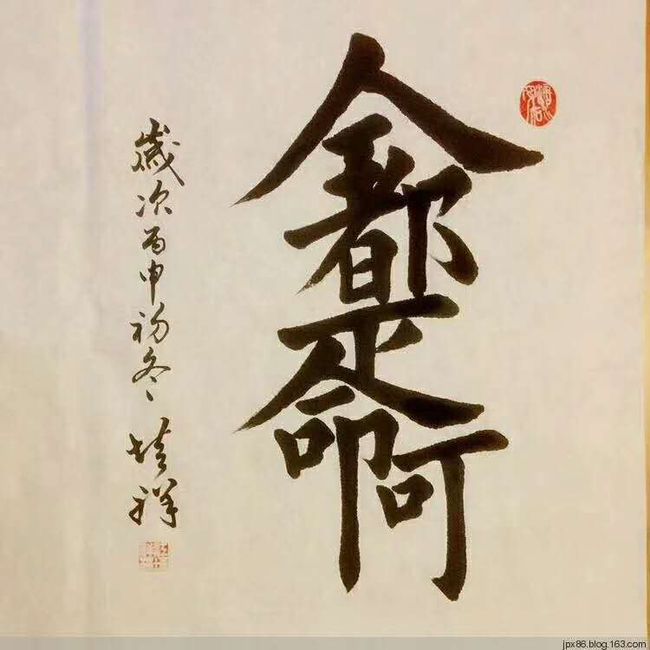 全都是命啊
歲次丙申初冬、培祥
jpx86.blog.163.com